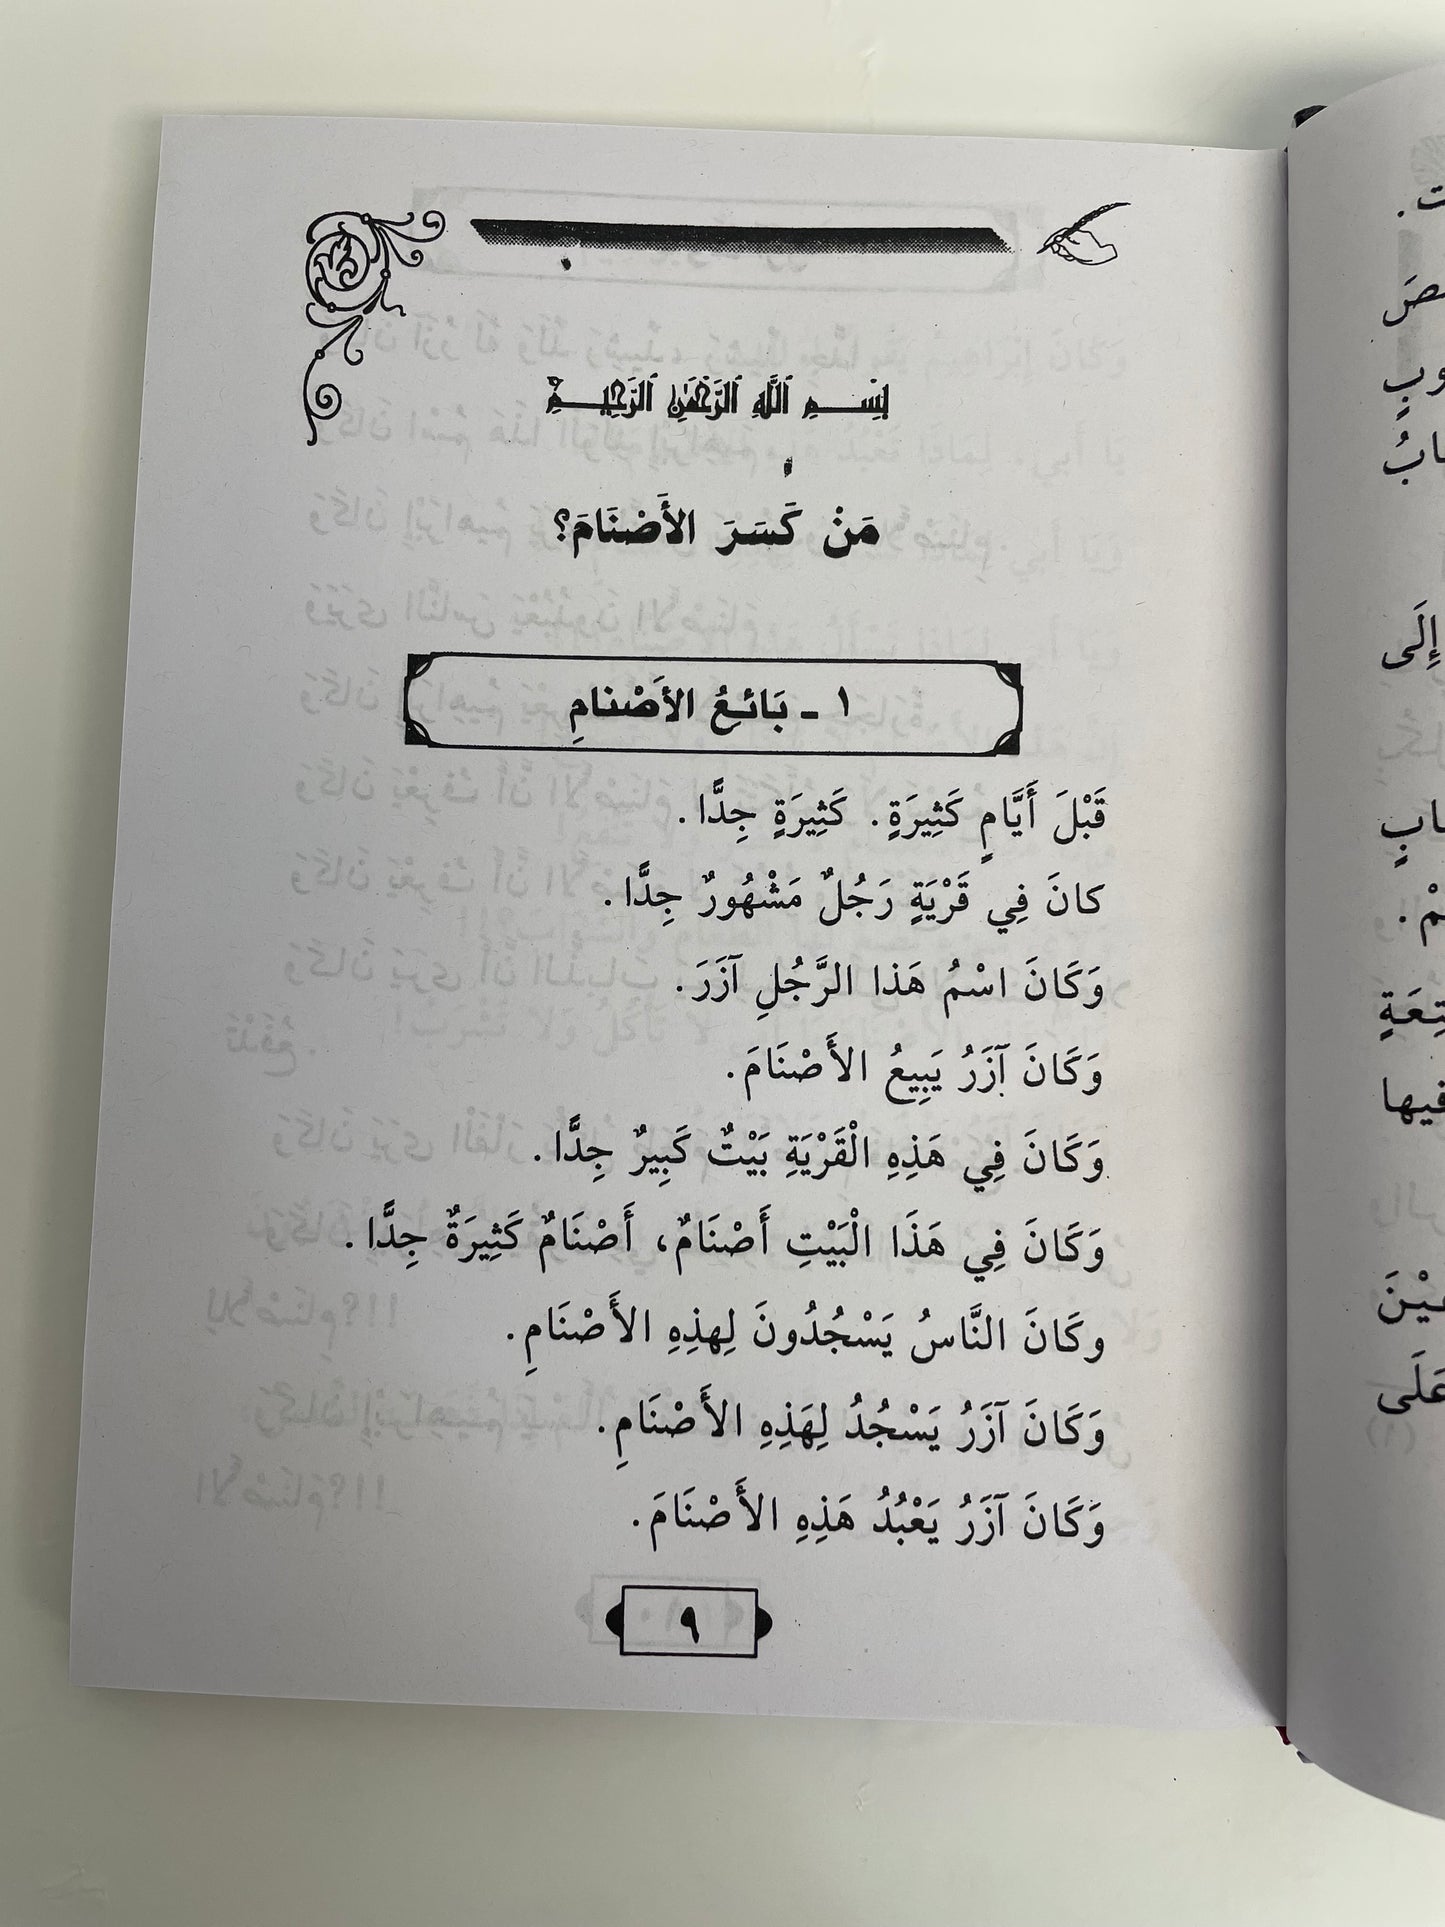 بِسْمِ ٱللَّهِ ٱلرَّحْمَٰنِ ٱلرَّحِيمِ
مَنْ كَسَرَ الأَصْنَامَ؟
١ - بَائِعُ الأَصْنامِ
قَبْلَ أَيَّامٍ كَثِيرَةٍ. كَثِيرَةٍ جِدًّا.
كانَ فِي قَرْيَةٍ رَجُلٌ مَشْهُورٌ جِدًّا.
وَكَانَ اسْمُ هَذا الرَّجُلِ آزَرَ.
وَكَانَ آزَرُ يَبِيعُ الأَصْنَامَ.
وَكَانَ فِي هَذِهِ الْقَرْيَةِ بَيْتٌ كَبِيرٌ جِدًّا.
وَكَانَ فِي هَذَا الْبَيْتِ أَصْنَامٌ، أَصْنَامٌ كَثِيرَةٌ جِدًّا.
وكَانَ النَّاسُ يَسْجُدُونَ لِهذِهِ الأَصْنَامِ.
وَكَانَ آزَرُ يَسْجُدُ لِهَذِهِ الأَصْنَامِ.
وَكَانَ آزَرُ يَعْبُدُ هَذِهِ الأَصْنَامَ.
٩
إِلَى
فيها
عَلَى